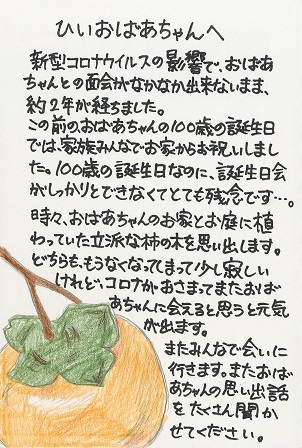 ひいおばあちゃんへ
新型コロナウイルスの影響で、おばあ
ちゃんとの面会がなかなか出来ないまま、
約2年が経ちました。
この前の、おばあちゃんの100歳の誕生日
では、家族みんなでお家からお祝いしまし
た。100歳の誕生日なのに、誕生日会
がしっかりとできなくてとても残念です…。
時々、おばあちゃんのお家とお庭に植
わっていた立派な柿の木を思い出します。
どちらも、もうなくなってしまって少し寂しい
けれど、コロナが、おさまってまたおば
あちゃんに会えると思うと元気
が出ます。
またみんなで会いに
行きます。またおば
あちゃんの思い出話
をたくさん聞か
せてください。